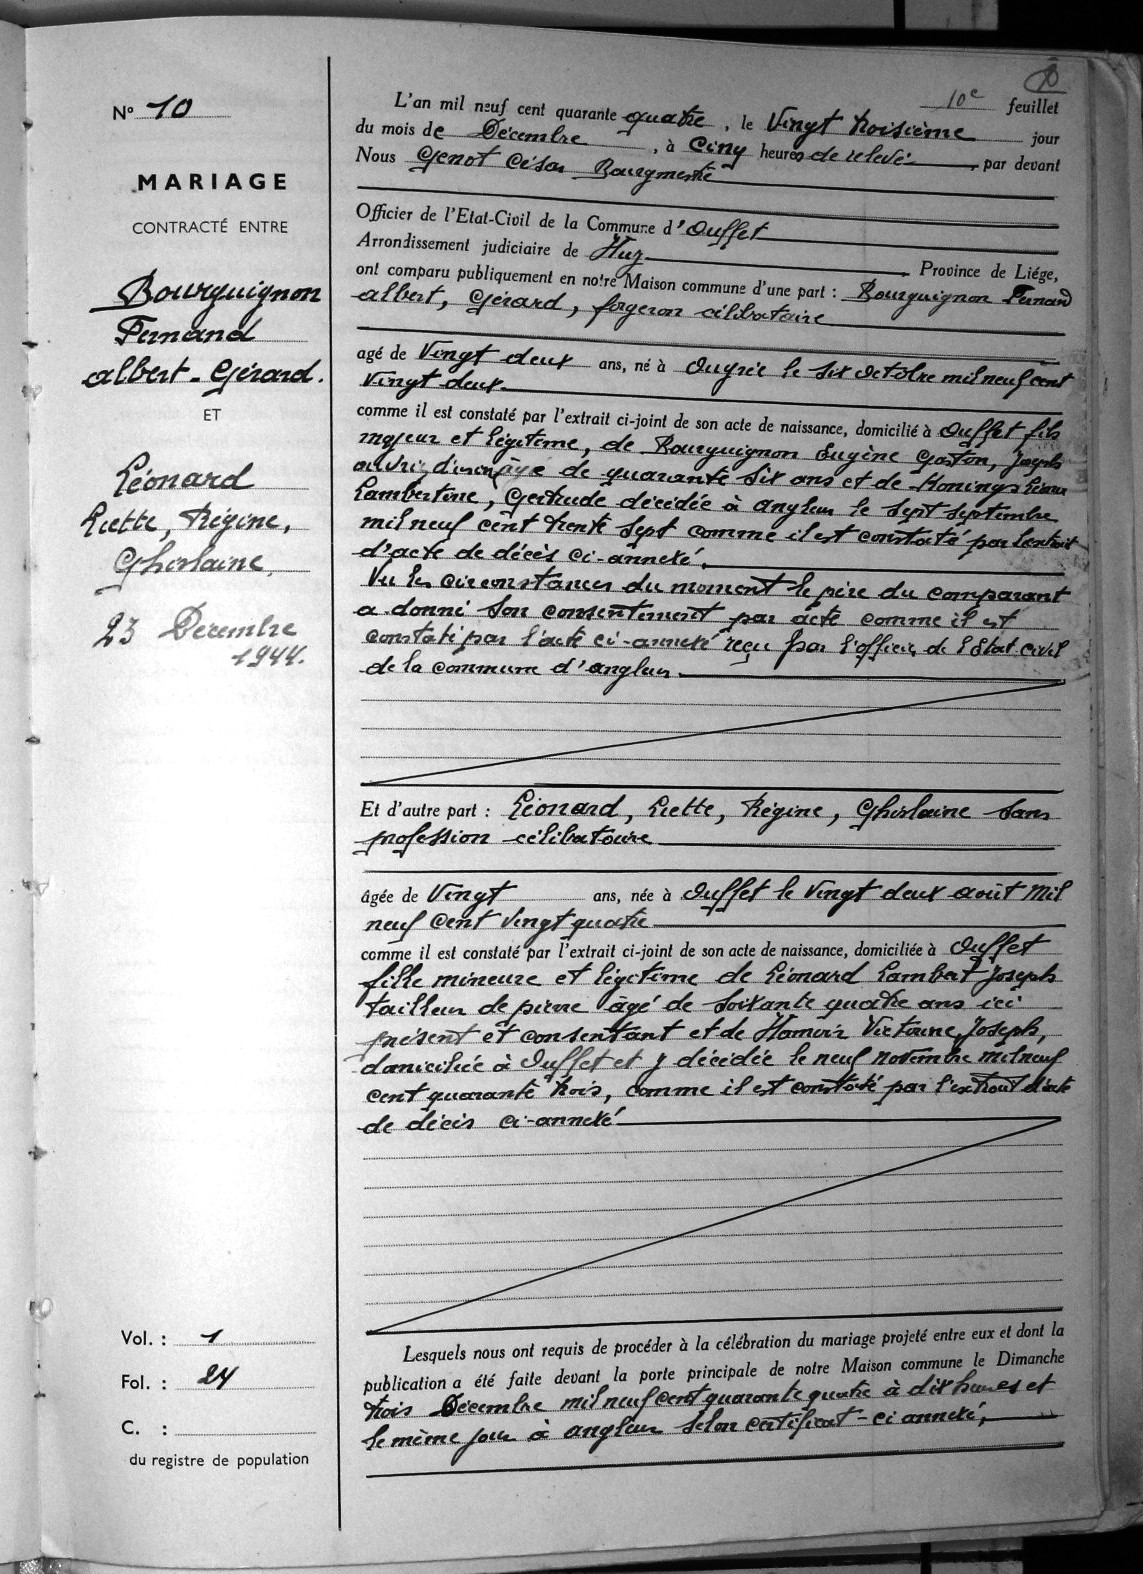 10
10e feuillet
N° 10
MARIAGE
CONTRACTÉ ENTRE
Bourguignon
Fernand
Albert - Gérard.
ET
Léonard
Liette, Régine,
Ghislaine,
23 Décembre
1944.
Vol. : 1
Fol. : 24
C. :
du registre de population
L'an mil neuf cent quarante quatre, le Vingt troisième jour
du mois de Décembre, à Cinq heures de relevé par devant
Nous Genot César Bourgmestre
Officier de l'Etat-Civil de la Commune d'Ouffet
Arrondissement judiciaire de Huy Province de Liége,
ont comparu publiquement en notre Maison commune d'une part : Bourguignon Fernand
Albert, Gérard, forgeron célibataire
agé de Vingt deux ans, né à Ougrée le Six octobre mil neuf cent
vingt deux
comme il est constaté par l'extrait ci-joint de son acte de naissance, domicilié à Ouffet fils
majeur et légitime, de Bourguignon Eugène Gaston, Joseph
ouvrier d'usine âgé de quarante six ans et de Honings
Lambertine, Gertrude décédée à Angleur le Sept Septembre
mil neuf cent trente Sept comme il est constaté par l'extrait
d'acte de décès ci-annexé.
Vu les circonstances du moment le père du comparant
a donné son consentement par acte comme il est
constaté par l'acte ci-annexé reçu par l'officier de l'Etat-civil
de la commune d'Angleur
Et d'autre part : Léonard, Liette, Régine, Ghislaine sans
profession célibataire
âgée de Vingt ans, née à Ouffet le Vingt deux août Mil
neuf Cent Vingt quatre
comme il est constaté par l'extrait ci-joint de son acte de naissance, domiciliée à Ouffet
fille mineure et légitime de Léonard Lambert Joseph
tailleur de pierre âgé de soixante quatre ans ici
présent et consentant et de Hamoir Victorine, Joseph,
domiciliée à Ouffet et y décédée le neuf novembre mil neuf
cent quarante trois, comme il est constaté par l'extrait d'acte
de décès ci-annexé
Lesquels nous ont requis de procéder à la célébration du mariage projeté entre eux et dont la
publication a été faite devant la porte principale de notre Maison commune le Dimanche
trois Décembre mil neuf cent quarante quatre à dix heures et
le même jour à Angleur selon certificat-ci annexé,